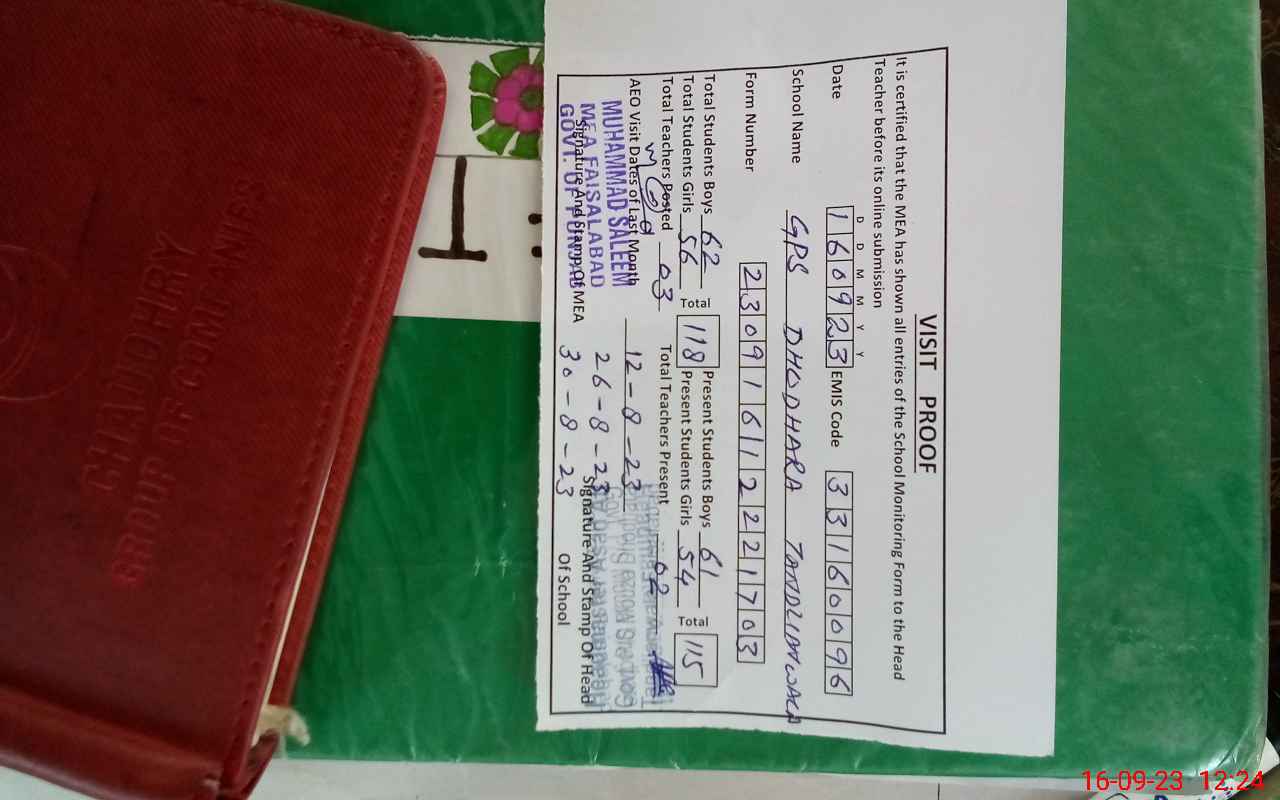 VISIT PROOF
It is certified that the MEA has shown all entries of the School Monitoring Form to the Head
Teacher before its online submission
D D M M Y Y
Date 160923 EMIS Code 33160096
School Name GPS DHODHARA TANDLIANWALA
Form Number 230916112221703
Total Students Boys 62 Total 118 Present Students Boys 61 Total 115
Total Students Girls 56 Present Students Girls 54
Total Teachers Posted 03 Total Teachers Present 02
AEO Visit Dates of Last Month 12-8-23
26-8-23
30-8-23
MUHAMMAD SALEEM
MEA FAISALABAD
GOVT. OF PUNJAB
Signature And Stamp Of MEA
Signature And Stamp Of Head
Of School
CHAUDHRY
GROUP OF COMPANIES
I
16-09-23 12:24